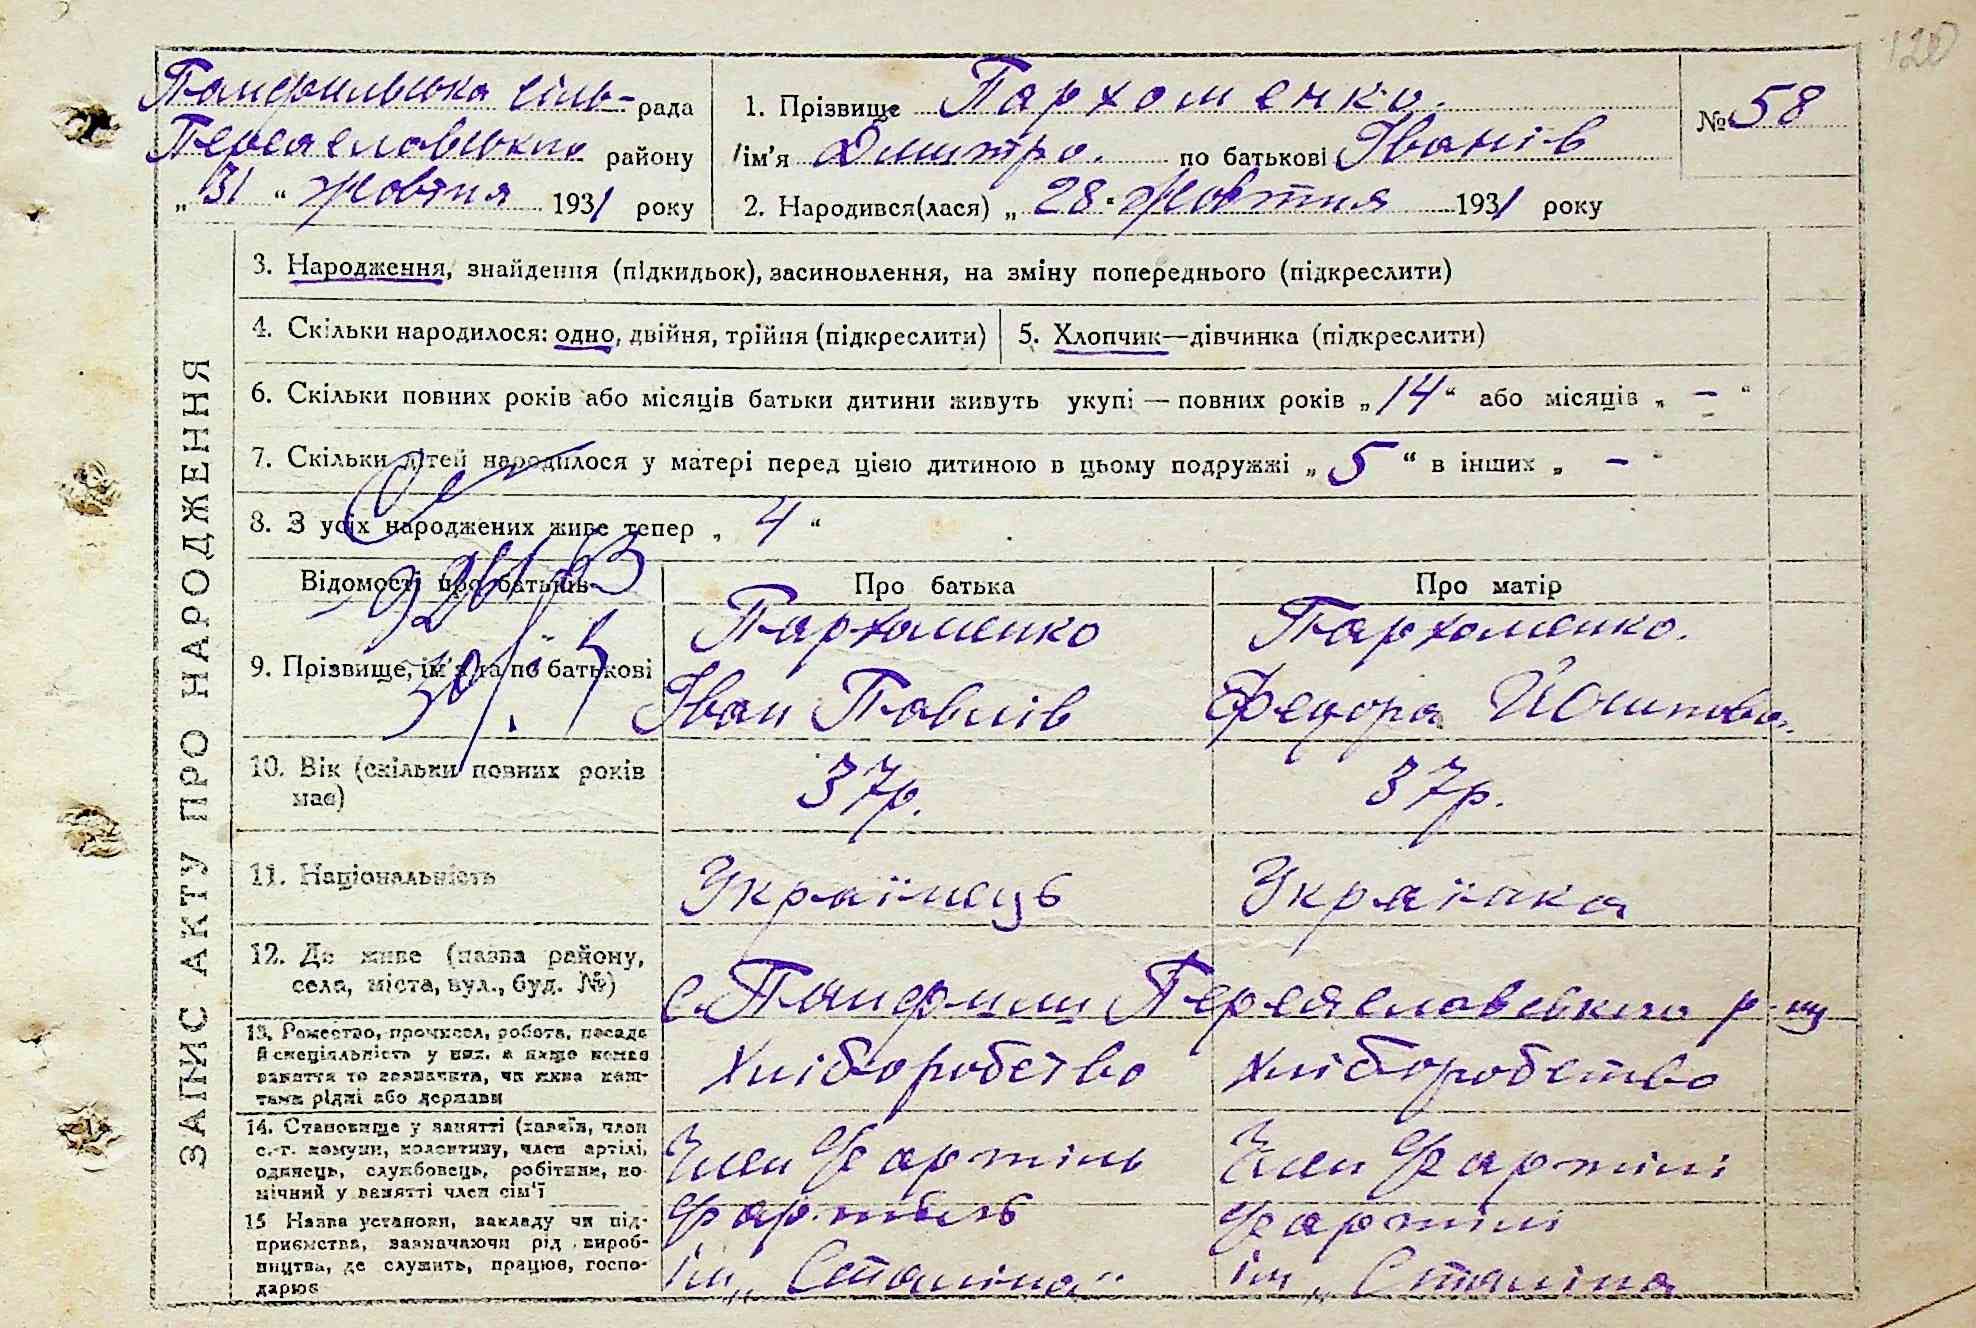 120
ЗАПИС АКТУ ПРО НАРОДЖЕННЯ
Памфильська сіль- рада
Переяславського району
„31“ Жовтня 1931 року
1. Прізвище Пархоменко.
ім'я Дмитро. по батькові Іванів
№ 58
2. Народився(лася) „28“ Жовтня 1931 року
3. Народження, знайдення (підкидьок), засиновлення, на зміну попереднього (підкреслити)
4. Скільки народилося: одно, двійня, трійня (підкреслити)
5. Хлопчик—дівчинка (підкреслити)
6. Скільки повних років або місяців батьки дитини живуть укупі — повних років „14“ або місяців „ – “
7. Скільки дітей народилося у матері перед цією дитиною в цьому подружжі „5“ в інших „ – “
8. З усіх народжених живе тепер „4“
Відомості про батьків
Про батька
Про матір
9. Прізвище, ім'я та по батькові
Пархоменко
Іван Павлів
Пархоменко.
Федора Йосипова.
10. Вік (скільки повних років
має)
37р.
37р.
11. Національність
Українець
Українка
12. Де живе (назва району,
села, міста, вул., буд. №)
с. Панфили Переяславського р-ну
13. Ремество, промисел, робота, посада
й спеціяльність у них, а якщо немає
заняття то зазначити, чи живе кош-
тами рідні або держави
Хліборобство
Хліборобство
14. Становище у занятті (хазяїн, член
с.-г. комуни, колективу, член артілі,
одинець, службовець, робітник, по-
мічний у занятті член сім'ї
Член
Член
15 Назва установи, закладу чи під-
приємства, зазначаючи рід вироб-
ництва, де служить, працює, госпо-
дарює
ім „Сталіна“
ім „Сталіна